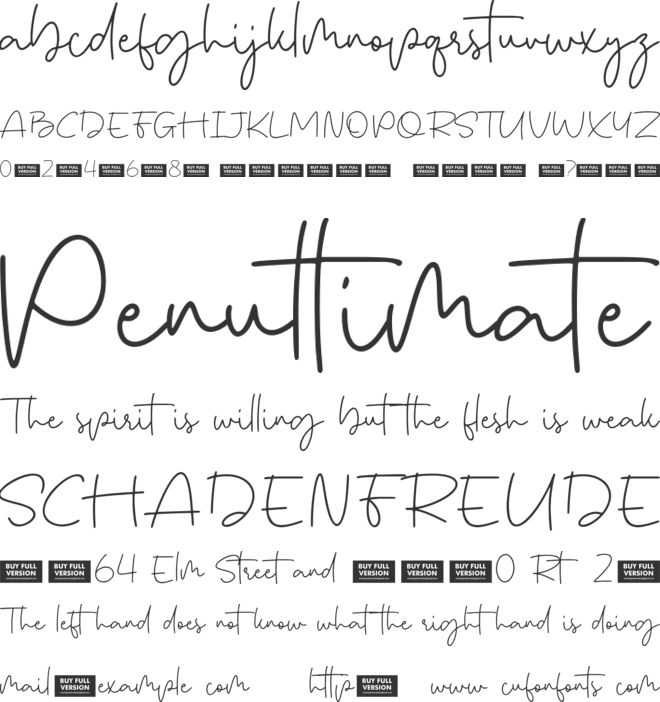 abcdefghijklmnopqrstuvwxyz
ABCDEFGHIJKLMNOPQRSTUVWXYZ
0 BUY FULL VERSION 2 BUY FULL VERSION 4 BUY FULL VERSION 6 BUY FULL VERSION 8 BUY FULL VERSION BUY FULL VERSION BUY FULL VERSION BUY FULL VERSION BUY FULL VERSION BUY FULL VERSION BUY FULL VERSION BUY FULL VERSION BUY FULL VERSION BUY FULL VERSION BUY FULL VERSION BUY FULL VERSION ? BUY FULL VERSION BUY FULL VERSION BUY FULL VERSION
Penuttimate
The spirit is willing but the flesh is weak
SCHADENFREUDE
BUY FULL VERSION BUY FULL VERSION 64 Elm Street and BUY FULL VERSION BUY FULL VERSION BUY FULL VERSION 0 Rt 2 BUY FULL VERSION
The left hand does not know what the right hand is doing
mail BUY FULL VERSION example com http BUY FULL VERSION www cufonfonts com